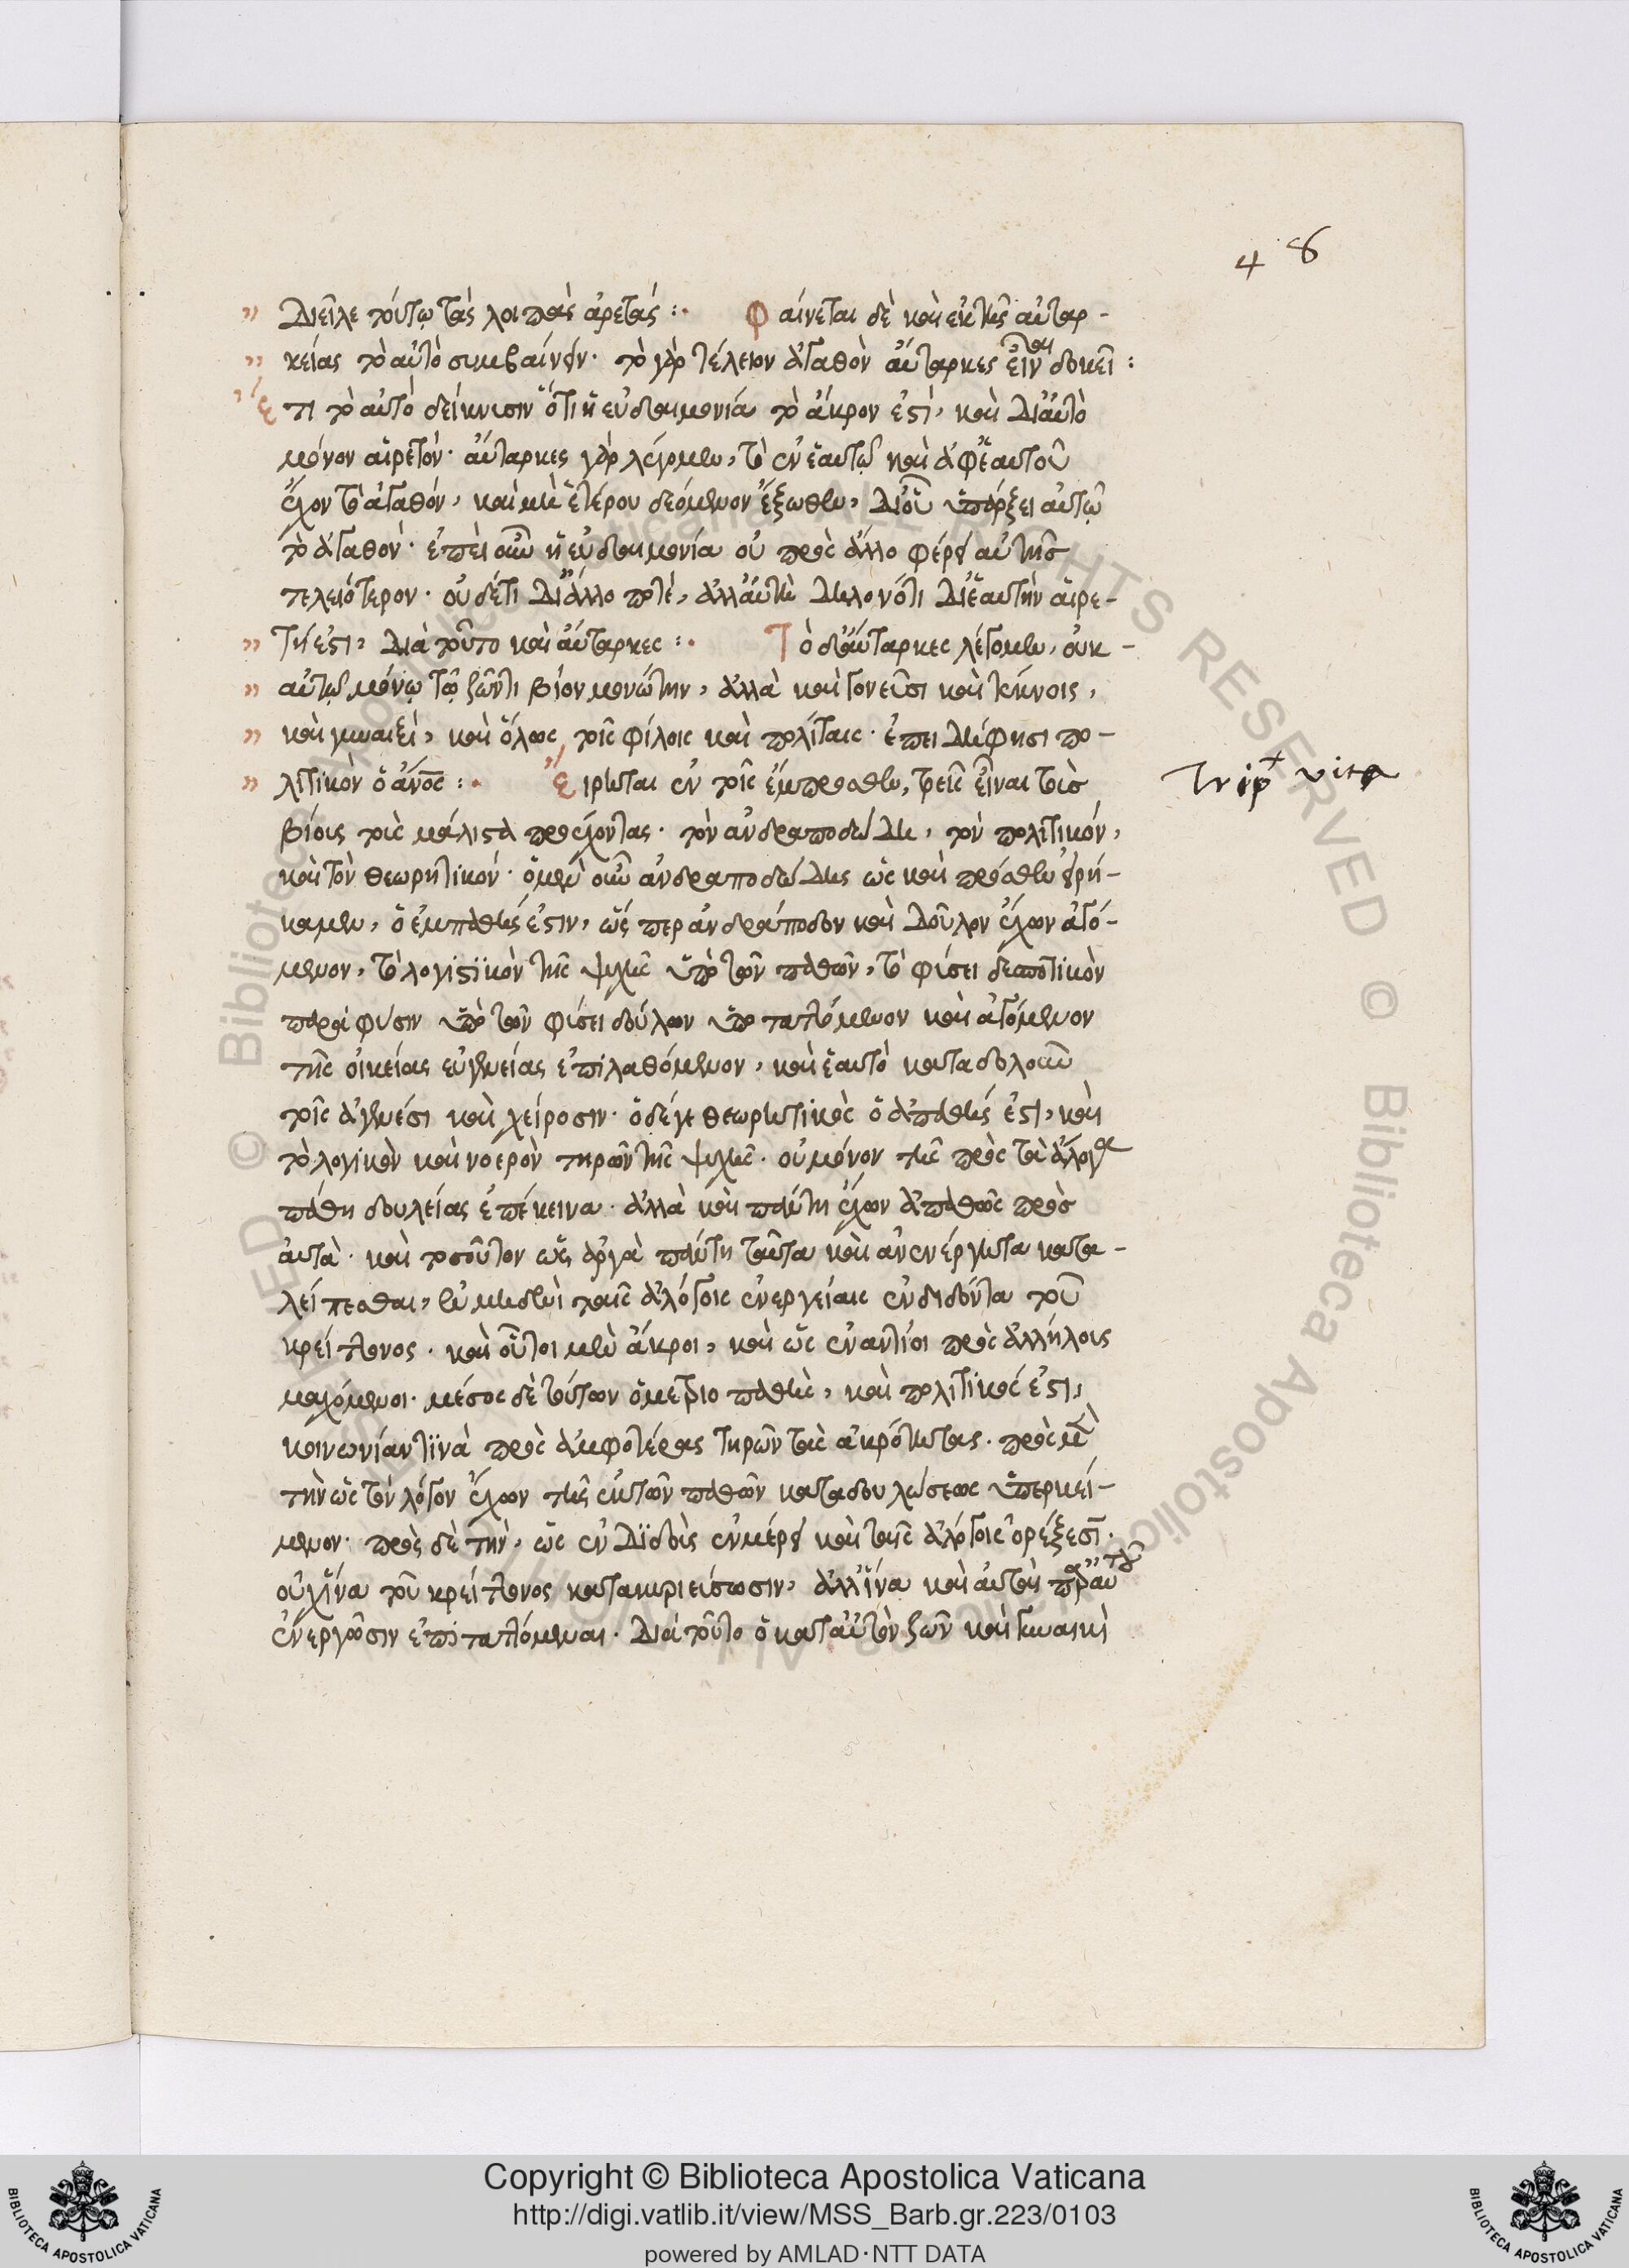 48
διεῖλε τούτω τὰς λοιπὰς ἀρετάς :· Φαίνεται δὲ καὶ ἐκ τῆς αὐταρ-
κείας τὸ αὐτὸ συμβαίνειν· τὸ γὰρ τέλειον ἀγαθὸν αὔταρκες εἶναι δοκεῖ :
Ἔτι τὸ αὐτὸ δείκνυσιν ὅτι ἡ εὐδαιμονία τὸ ἄκρον ἐστὶ, καὶ δι' αὐτὸ
μόνον αἱρετόν· αὔταρκες γὰρ λέγομεν, τὸ ἐν ἑαυτῷ καὶ ἀφ' ἑαυτοῦ
ἔχον τὸ ἀγαθόν, καὶ μὴ ἑτέρου δεόμενον ἔξωθεν, δι' οὗ ὑπάρξει αὐτῷ
τὸ ἀγαθόν· ἐπεὶ οὖν ἡ εὐδαιμονία οὐ πρὸς ἄλλο φέρει αὐτῆς
τελειότερον· οὐδέ τι δι' ἄλλο ποτέ, ἀλλ' αὐτὴ δηλονότι δι' ἑαυτὴν αἱρε-
τή ἐστι, διὰ τοῦτο καὶ αὔταρκες :· Τὸ δ' αὔταρκες λέγομεν, οὐκ
αὐτῷ μόνῳ τῷ ζῶντι βίον μονώτην, ἀλλὰ καὶ γονεῦσι καὶ τέκνοις,
καὶ γυναιξὶ, καὶ ὅλως τοῖς φίλοις καὶ πολίταις· ἐπει δὴ φησι πο-
λιτικὸν ὁ ἄνος :· Εἴρηται ἐν τοῖς ἔμπροσθεν, τρεῖς εἶναι τοὺς
Trip vita
βίους τοὺς μάλιστα προέχοντας· τὸν ἀνδραποδώδη, τὸν πολιτικόν,
καὶ τὸν θεωρητικόν· ὁ μὲν οὖν ἀνδραποδώδης ὡς καὶ πρόσθεν εἰρή-
καμεν, ὁ ἐμπαθής ἐστιν, ὥς περ ἀνδράποδον καὶ δοῦλον ἔχων ἀγό-
μενον, τὸ λογιστικὸν τῆς ψυχῆς ὑπὸ τῶν παθῶν, τὸ φύσει δεσποτικὸν
παρὰ φύσιν ὑπὸ τῶν φύσει δούλων ὑποταττόμενον καὶ ἀγόμενον
τῆς οἰκείας εὐγενείας ἐπιλαθόμενον, καὶ ἑαυτὸ καταδουλοῦν
τοῖς ἀγενέσι καὶ χείροσιν· ὁ δέ γε θεωρητικὸς ὁ ἀπαθής ἐστι, καὶ
τὸ λογικὸν καὶ νοερὸν τηρῶν τῆς ψυχῆς· οὐ μόνον τῆς πρὸς τὰ ἄλογα
πάθη δουλείας ἐπέκεινα· ἀλλὰ καὶ πάντη ἔχων ἀπαθῶς πρὸς
αὐτὰ· καὶ τοσοῦτον ὡς ἀργὰ πάντη ταῦτα καὶ ἀνενέργητα κατα-
λείπεσθαι, ἐν μηδενὶ ταῖς ἀλόγοις ἐνεργείαις ἐνδιδόντα τοῦ
κρείττονος· καὶ οὗτοι μὲν ἄκροι, καὶ ὡς ἐναντίοι πρὸς ἀλλήλους
μαχόμενοι· μέσος δὲ τούτων ὁ μετριοπαθὴς, καὶ πολιτικός ἐστι,
κοινωνίαν τινὰ πρὸς ἀμφοτέρας τηρῶν τὰς ἀκρότητας· πρὸς μὲν
τὴν ὡς τὸν λόγον ἔχων τῆς ἐκ τῶν παθῶν καταδουλώσεως ὑπερκεί-
μενον· πρὸς δὲ τὴν, ὡς ἐνδιδοὺς ἐν μέρει καὶ ταῖς ἀλόγοις ὀρέξεσι·
οὐχ ἵνα τοῦ κρείττονος κατακυριεύσωσιν, ἀλλ' ἵνα καὶ αὐταὶ παρ' αὐτοῦ
ἐνεργῶσιν ἐπιταττόμεναι· διὰ τοῦτο ὁ κατ' αὐτὸν ζῶν καὶ γυναικὶ
Copyright © Biblioteca Apostolica Vaticana
http://digi.vatlib.it/view/MSS_Barb.gr.223/0103
powered by AMLAD·NTT DATA